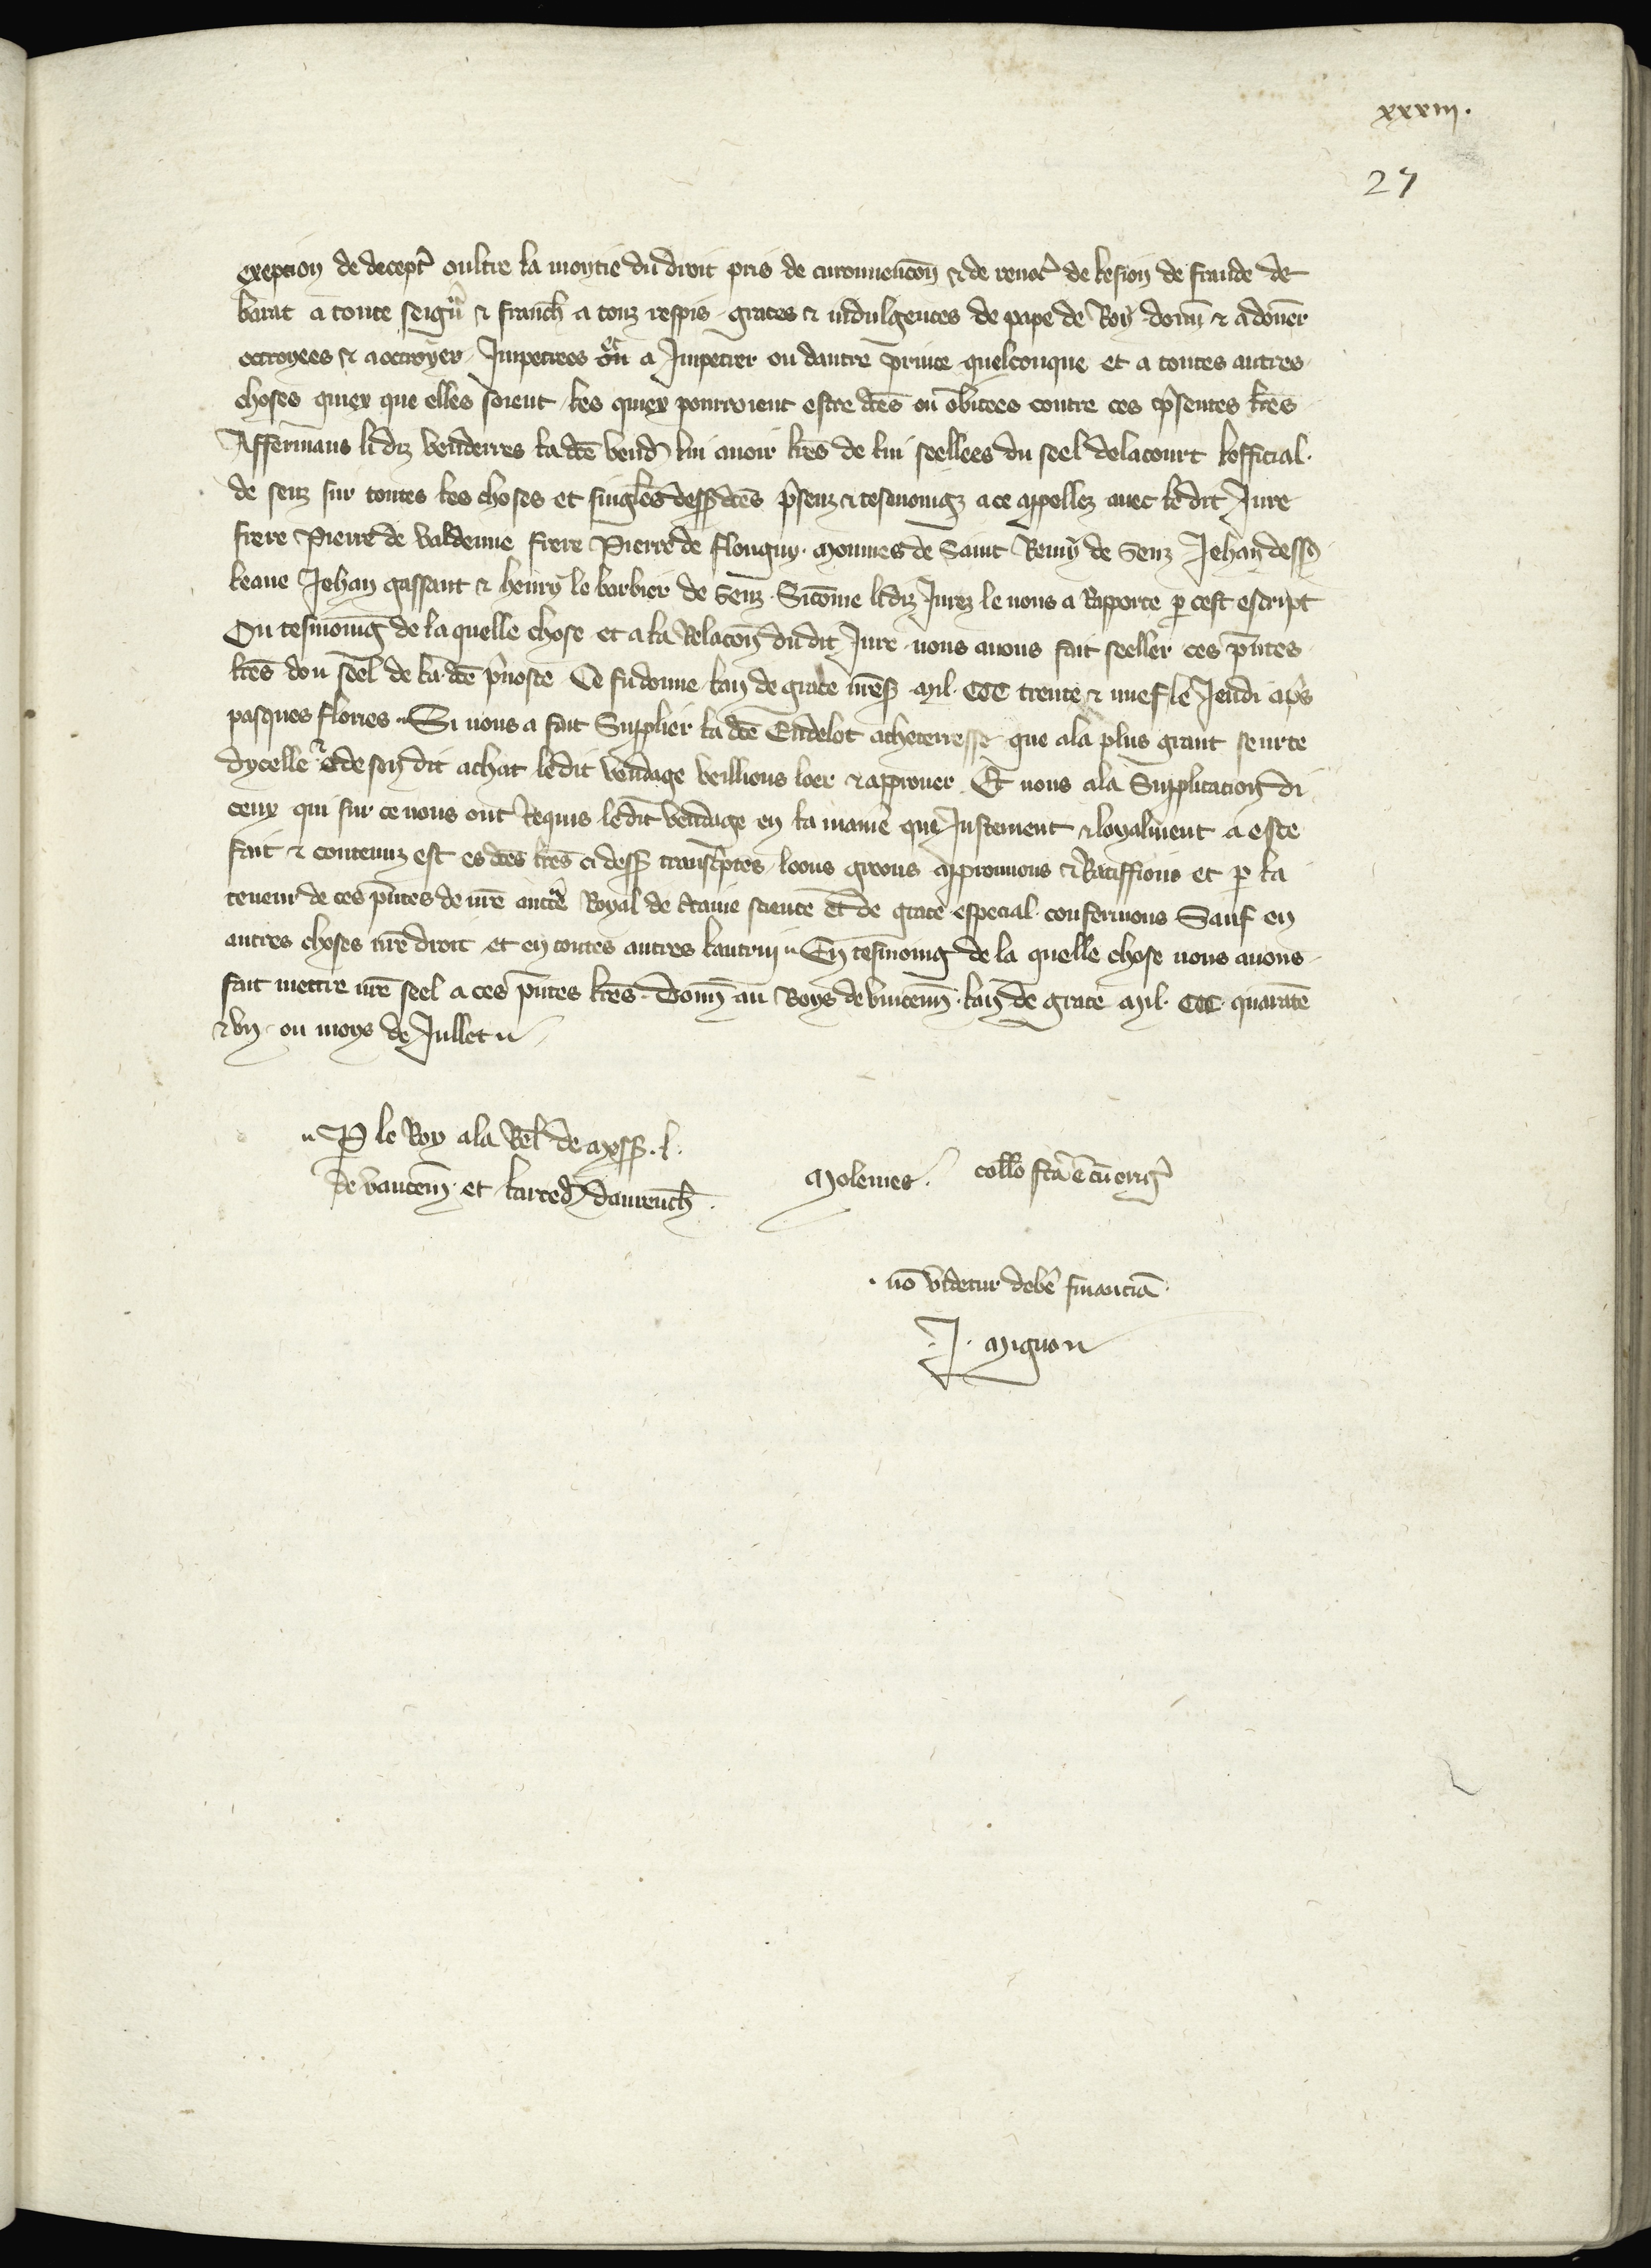 xxxiii.
27
exepcion de decept' oultre la moytie du droit pris de circonuencon̄ & de reuoc' de lesion de fraude de
barat a toute seign' & franch' a touz respis graces & indulgences de pape de Roy donn' & a doner
octroyees & a octroyer Impetrees et a Impetrer ou dautre prince quelconque et a toutes autres
choses quiex que elles soient les quiex pourroient estre d̄tes ou obicees contre ces p̄sentes l̄res
Affermans lidiz venderres la d̄te vend' lui auoir l̄res de lui seellees du seel de la court lofficial
de senz sur toutes les choses et singl̄es dess' d̄tes p̄senz & tesmoingz a ce appellez auec le dit Jure
frere Pierre de valdenne frere Pierre de flonguy moinnes de Saint Remy de Senz Jehan dess'
leaue Jehan gassaut & henry le barbier de Senz. Si cōme lidiz Jurez le nous a Rapporte p cest escript
Ou tesmoing de la quelle chose et a la Relacon̄ du dit Jure nous auons fait seeller ces p̄ntes
l̄res dou seel de la d̄te p̄uoste Ce fu donne lan de grace n̄res' mil CCC trente & nuef le Jeudi ap̄s
pasques flories Si nous a fait Supplier la d̄te Eudelot acheterresse que a la plus grant seurte
dycelle & de son dit achat ledit vendage veillions loer & approuer Et nous a la Supplicacion di
ceux qui sur ce nous ont Requis ledit vendage en la manie' que Justement & loyalment a este
fait & contenuz est es d̄tes l̄res ci dess' transcriptes loons greons approuuons & Ratiffions et p la
teneur de ces p̄ntes de n̄re auct̄e Royal de c̄taine science et de grace especial confermons Sauf en
autres choses n̄re droit et en toutes autres lautrui En tesmoing de la quelle chose nous auons
fait mettre n̄re seel a ces p̄ntes l̄res. Donn' au Boys de vincenn' lan de grace mil CCC quarante
& vn ou moys de Jullet
P le Roy a la Rel' de mess'. l.
de vaucem' et larced' dauranch'.
Molemes. coll'o fc̄a ē cū orig'
nō videtur debē financiā
J. Mignon